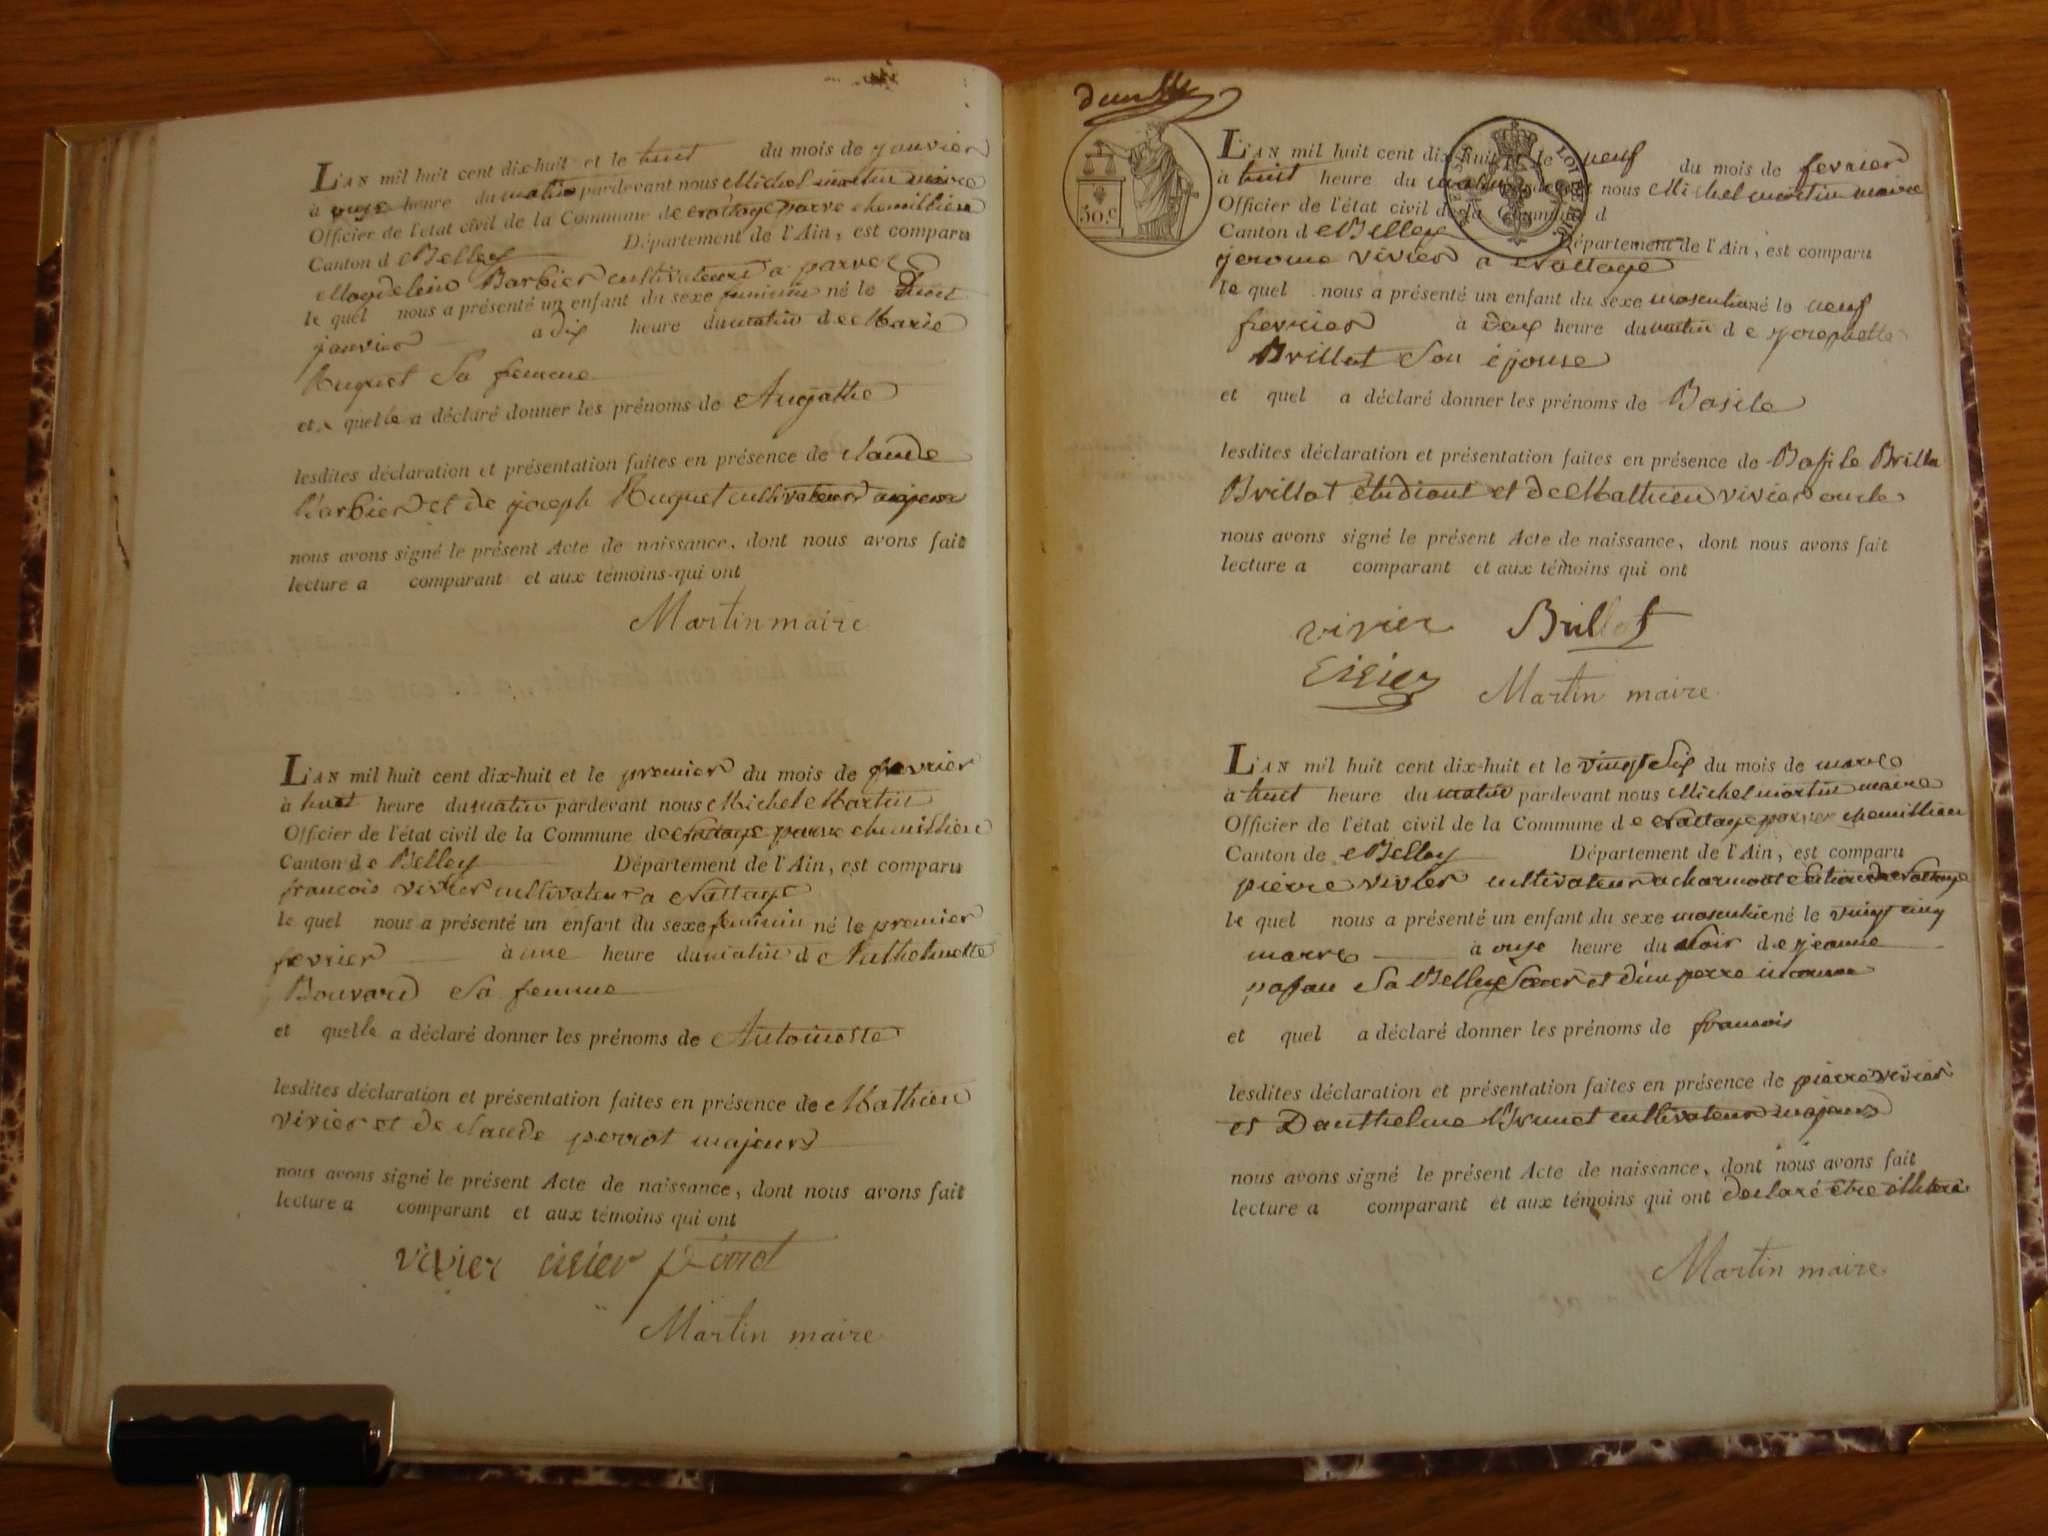 L'AN mil huit cent dix-huit et le huit du mois de janvier
à onze heure du matin pardevant nous Michel martin maire
Officier de l'état civil de la Commune de nattage parve chemillieu
Canton de Belley Département de l'Ain, est comparu
Magdeleine Barbier cultivateur a parve
le quel nous a présenté un enfant du sexe feminin né le huit
janvier a dix heure du matin de Marie
Huguet Sa femme
et quelle a déclaré donner les prénoms de Augathe
lesdites déclaration et présentation faites en présence de claude
Barbier et de joseph Huguet cultivateurs majeurs
nous avons signé le présent Acte de naissance, dont nous avons fait
lecture a comparant et aux témoins qui ont
Martin maire
L'AN mil huit cent dix-huit et le premier du mois de fevrier
à huit heure du matin pardevant nous Michel Martin
Officier de l'état civil de la Commune de nattage parve chemillieu
Canton de Belley Département de l'Ain, est comparu
francois vivier cultivateur a nattage
le quel nous a présenté un enfant du sexe feminin né le premier
fevrier à une heure du matin d Anthelmette
Bouvard Sa femme
et quelle a déclaré donner les prénoms de Antoinette
lesdites déclaration et présentation faites en présence de Mathieu
vivier et de claude perrot majeurs
nous avons signé le présent Acte de naissance, dont nous avons fait
lecture a comparant et aux témoins qui ont
vivier vivier perrot
Martin maire
50.c
L'AN mil huit cent dix-huit et le neuf du mois de fevrier
à huit heure du matin pardevant nous Michel martin maire
Officier de l'état civil de la Commune d
Canton de Belley Département de l'Ain, est comparu
jerome vivier a nattage
le quel nous a présenté un enfant du sexe masculin né le neuf
fevrier à deux heure du matin de josephette
Brillat Son épouse
et quel a déclaré donner les prénoms de Basile
lesdites déclaration et présentation faites en présence de Basile Brilla
Brillat étudiant et de Mathieu vivier oncle
nous avons signé le présent Acte de naissance, dont nous avons fait
lecture a comparant et aux témoins qui ont
vivier Brillat
vivier Martin maire
L'AN mil huit cent dix-huit et le vingt Six du mois de mars
à huit heure du matin pardevant nous Michel martin maire
Officier de l'état civil de la Commune de nattage parve chemillieu
Canton de Belley Département de l'Ain, est comparu
pierre vivier cultivateur a charmont de nattage
le quel nous a présenté un enfant du sexe masculin né le vingt cinq
mars à onze heure du Soir de jeanne
Sa Belle Soeur et d'un perre inconnu
et quel a déclaré donner les prénoms de francois
lesdites déclaration et présentation faites en présence de pierre vivier
et Danthelme Brunet cultivateur majeurs
nous avons signé le présent Acte de naissance, dont nous avons fait
lecture a comparant et aux témoins qui ont declaré être illiteré
Martin maire